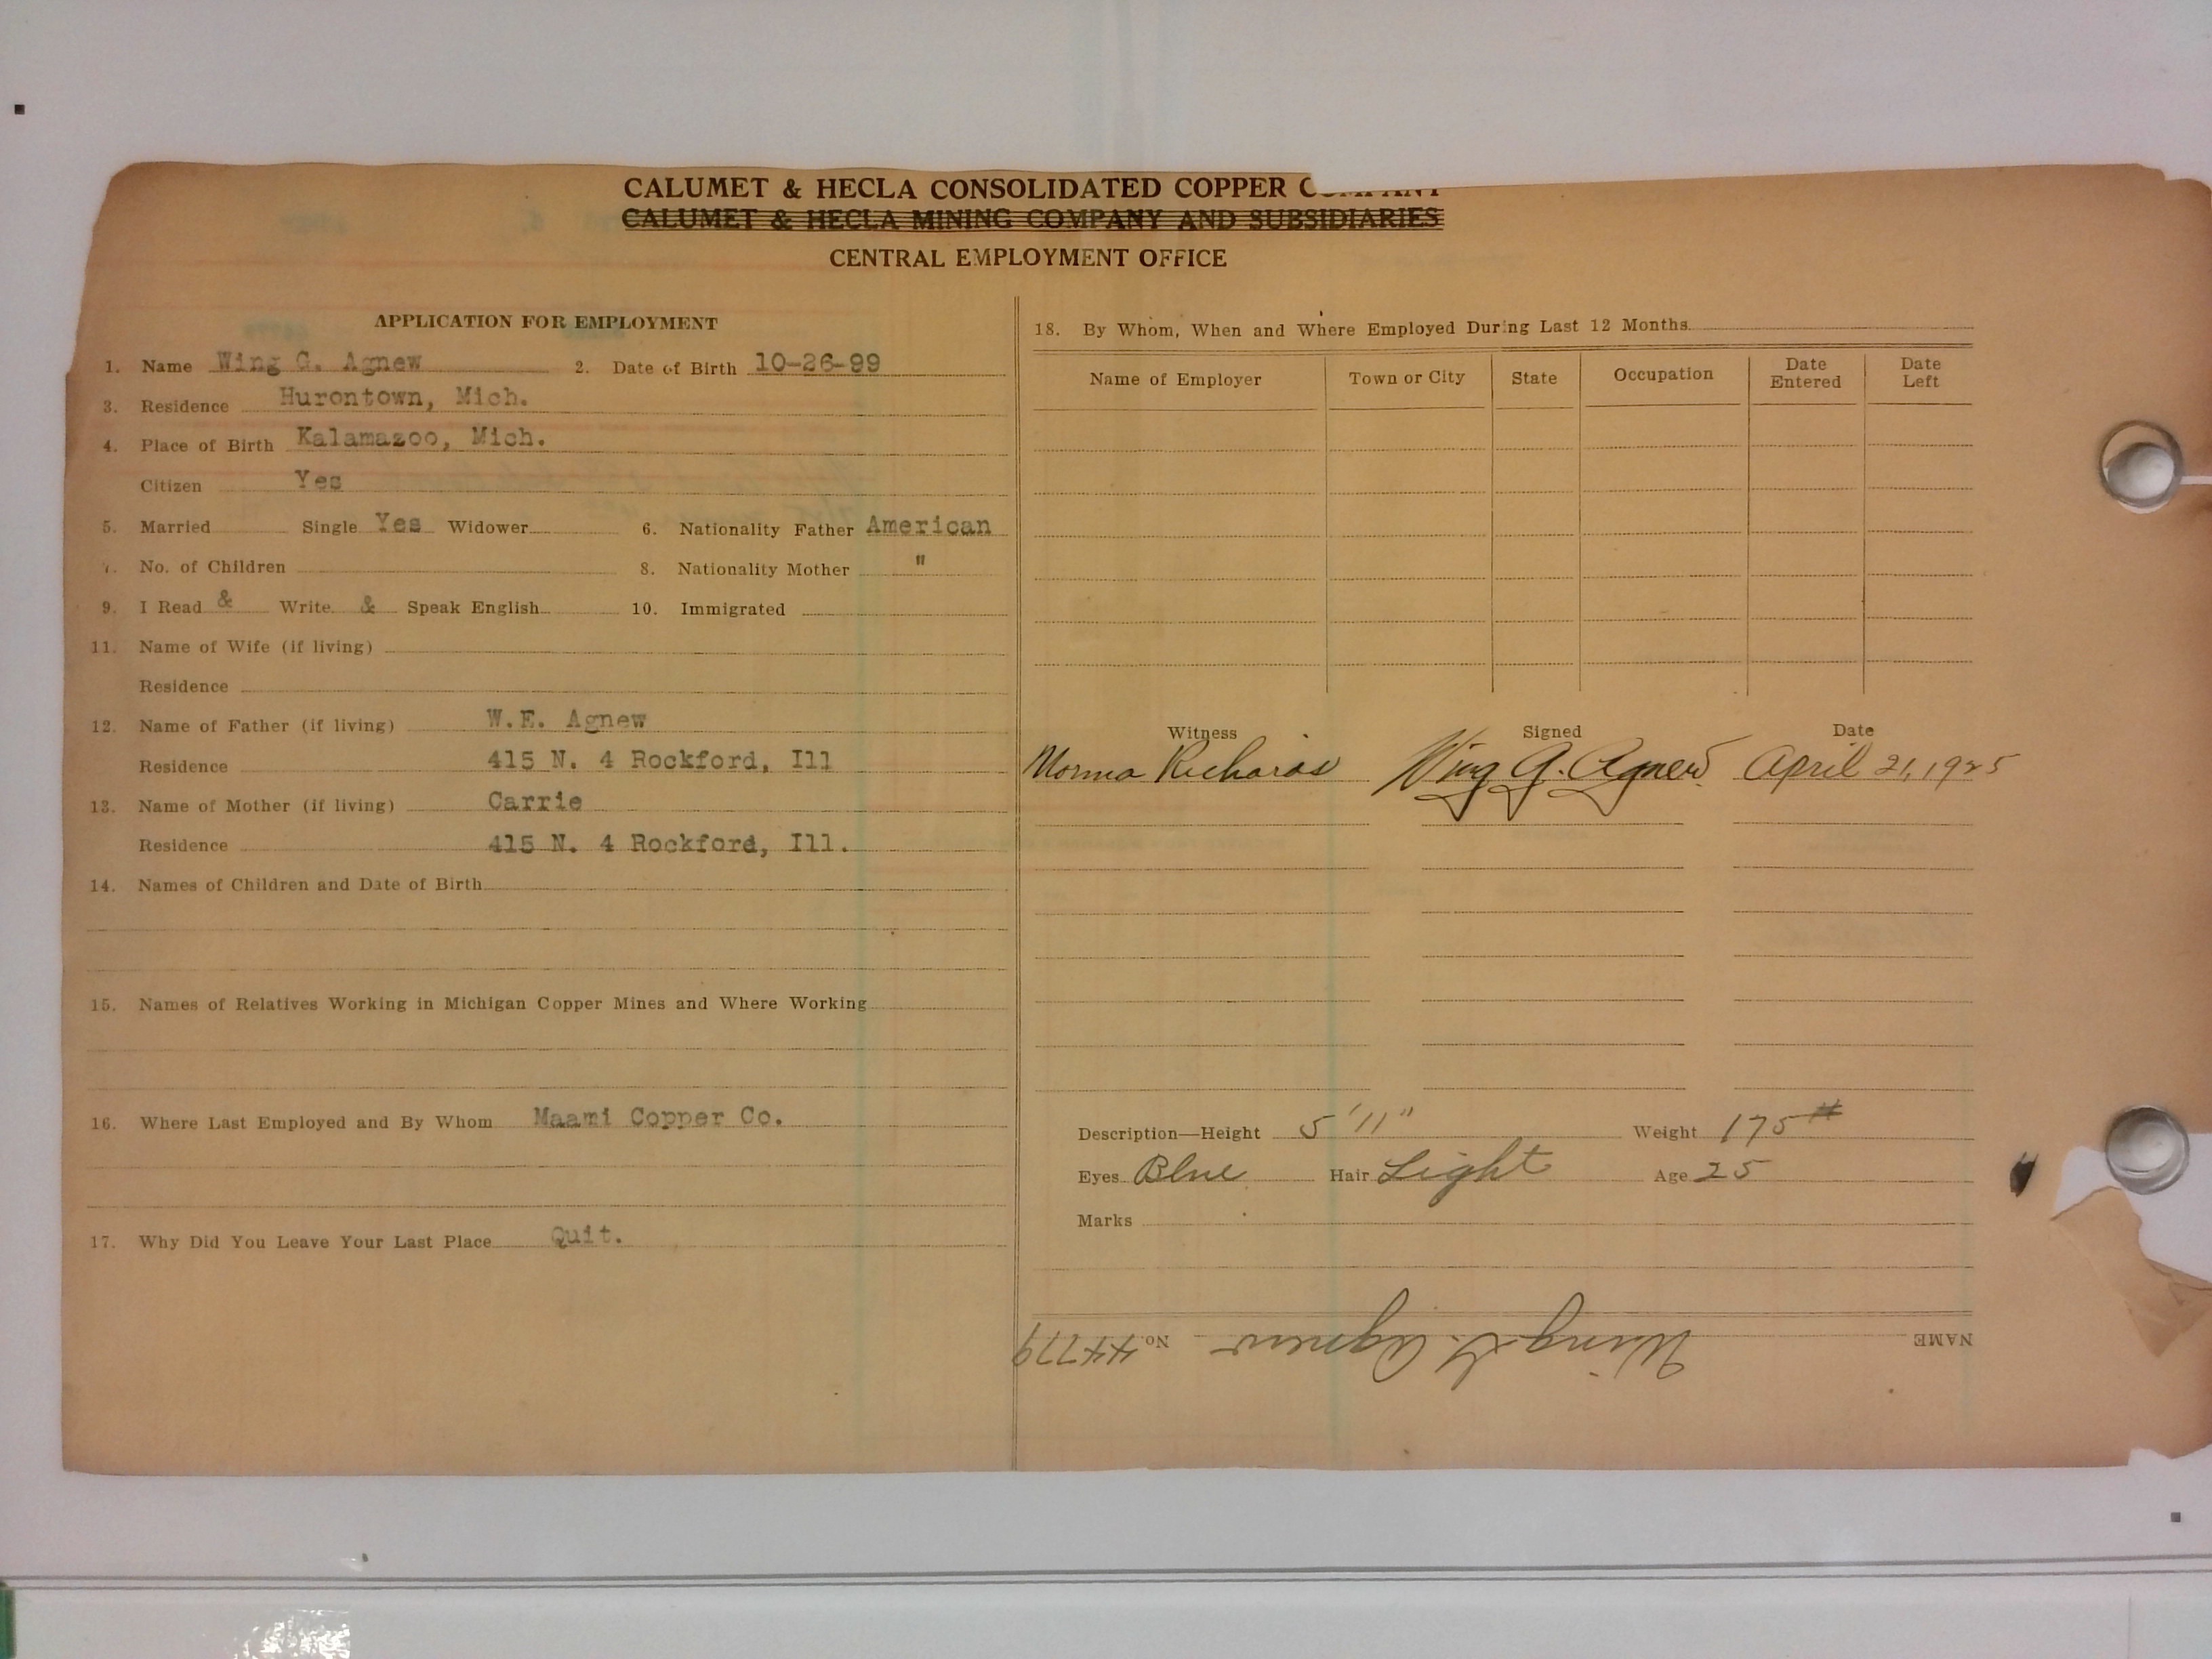 CALUMET & HECLA CONSOLIDATED COPPER COMPANY
CALUMET & HECLA MINING COMPANY AND SUBSIDIARIES
CENTRAL EMPLOYMENT OFFICE
APPLICATION FOR EMPLOYMENT
1. Name Wing G. Agnew 2. Date of Birth 10-26-99
3. Residence Hurontown, Mich.
4. Place of Birth Kalamazoo, Mich.
Citizen Yes
5. Married Single Yes Widower 6. Nationality Father American
7. No. of Children 8. Nationality Mother "
9. I Read & Write & Speak English 10. Immigrated
11. Name of Wife (if living)
Residence
12. Name of Father (if living) W.E. Agnew
Residence 415 N. 4 Rockford, Ill
13. Name of Mother (if living) Carrie
Residence 415 N. 4 Rockford, Ill.
14. Names of Children and Date of Birth
15. Names of Relatives Working in Michigan Copper Mines and Where Working
16. Where Last Employed and By Whom Maami Copper Co.
17. Why Did You Leave Your Last Place Quit.
18. By Whom, When and Where Employed During Last 12 Months
Name of Employer Town or City State Occupation Date Entered Date Left
Witness Signed Date
Norma Richards Wing G. Agnew April 21, 1925
Description—Height 5'11" Weight 175#
Eyes Blue Hair Light Age 25
Marks
NAME Wing G. Agnew No. 44779